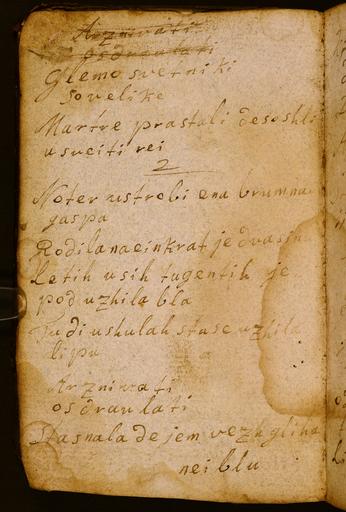 Arznivati
osdravlati
Glemo svetniki
so velike
Martre prastali de so shli
u sveiti rei
2
Noter ustrobi ena brumna
gaspa
Rodila na einkrat je dva sinu
Letih usih tugentih je
pod uzhila bla
Tudi ushulah sta se uzhila
lipu
Arznivati
osdravlati
Sta snala de jem vezh gliha
nei blu